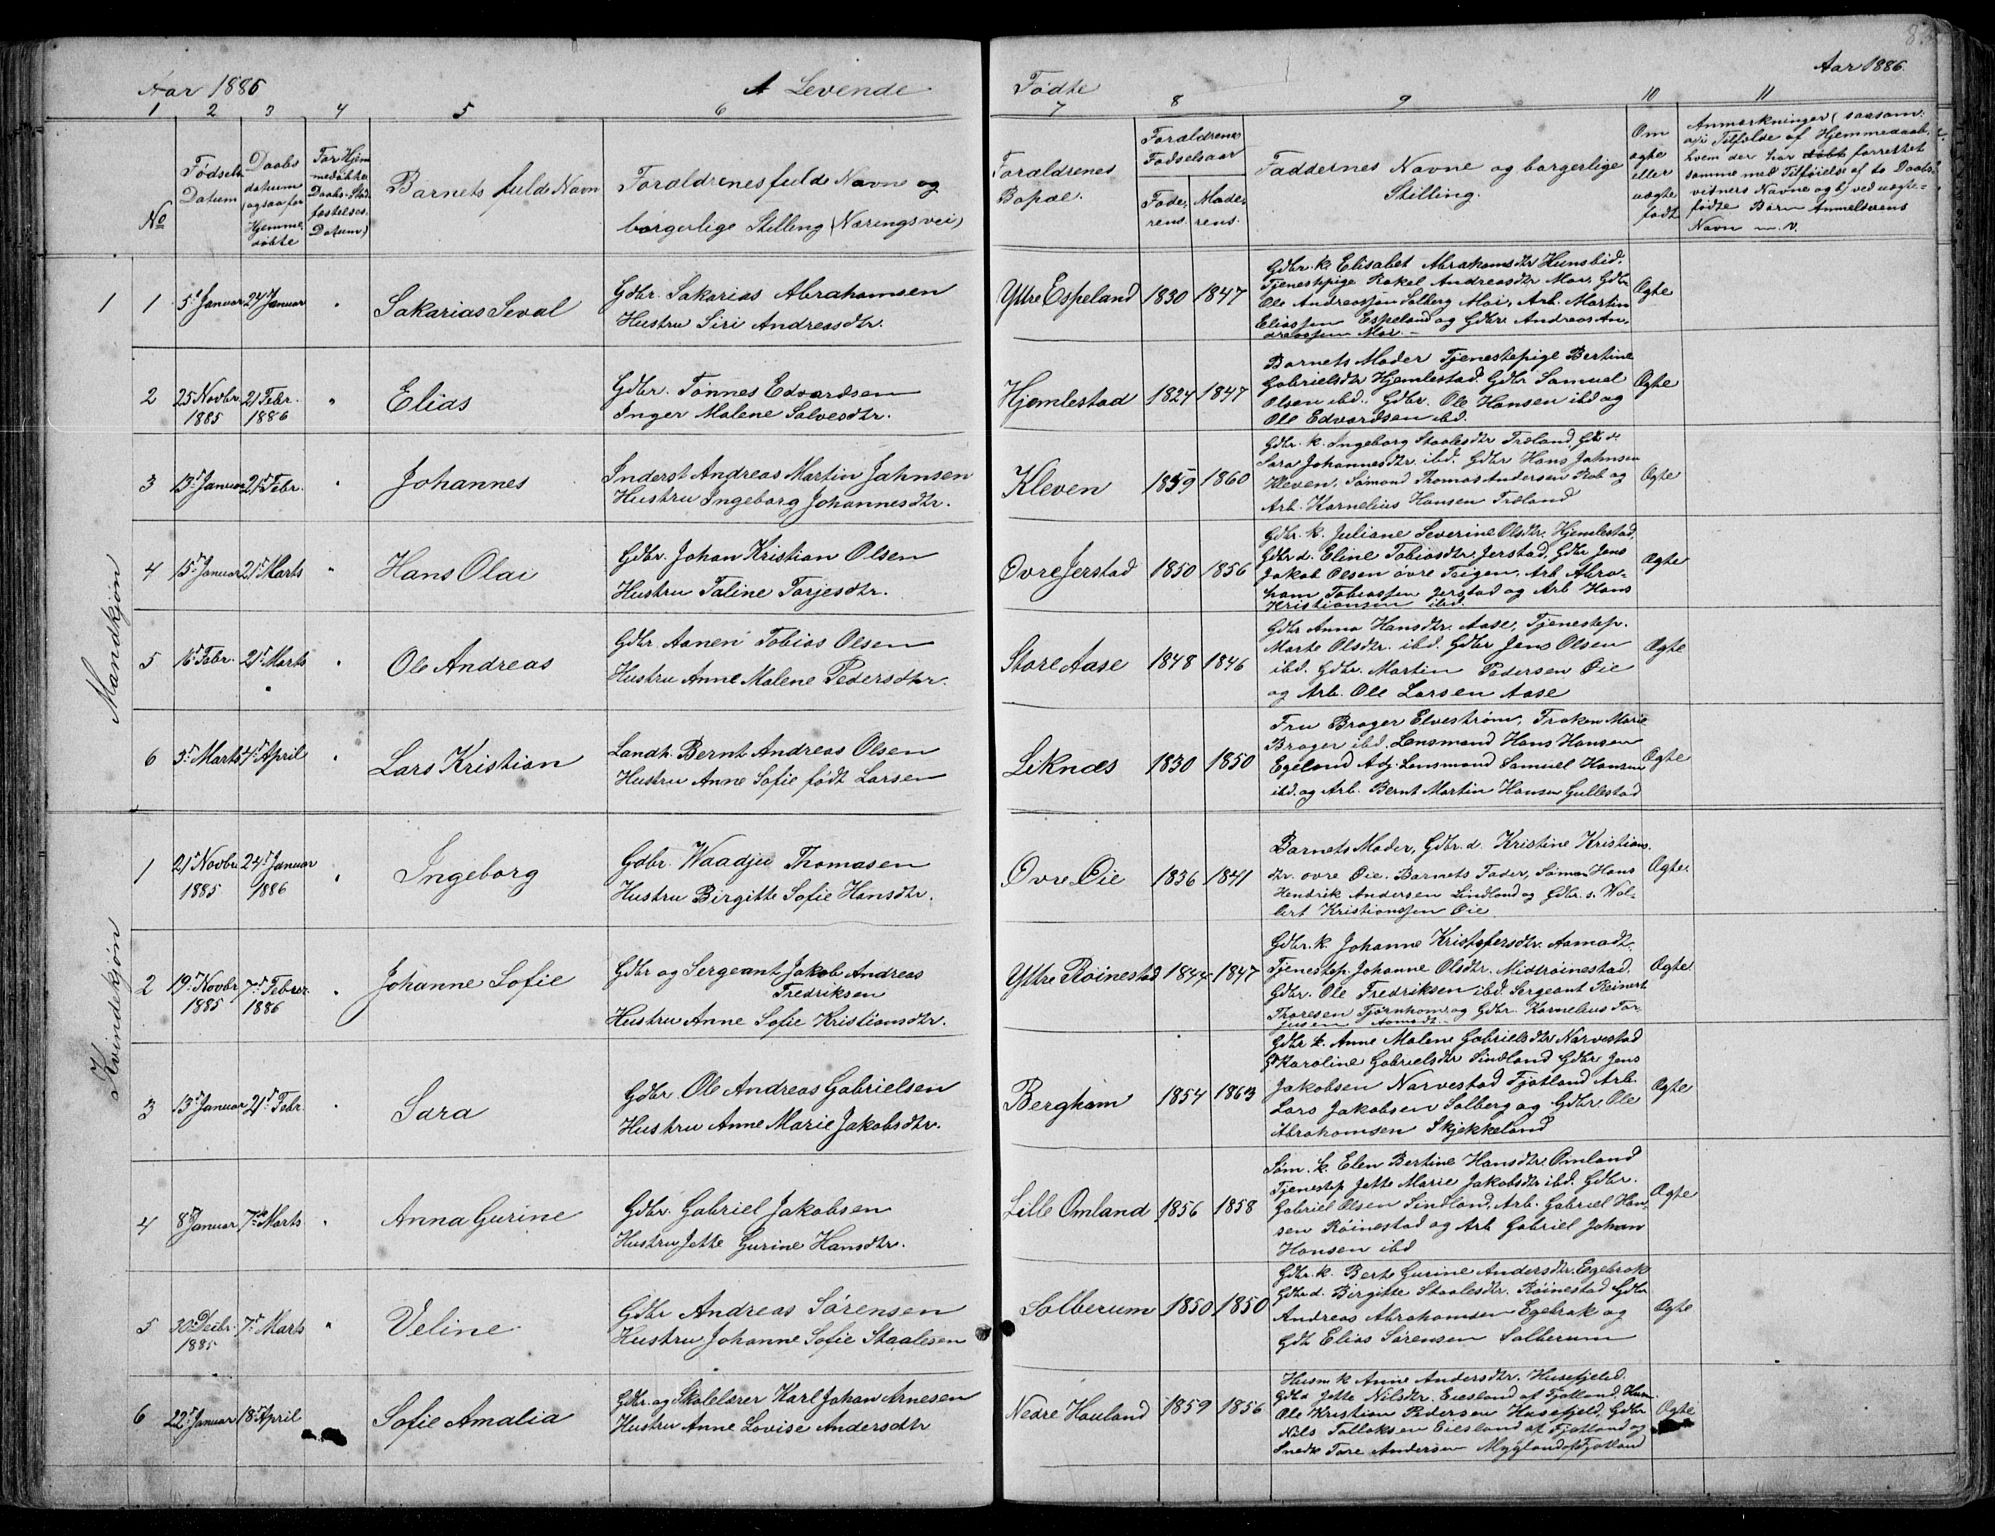 Aar 1886
A Levende
Fødte
Aar 1886.
1 2 3 4 5 6 7 8 9 10 11
No
Fødsels
Datum
Daabs
datum
(ogsaa for
Hjemme
døbte
For Hjem
medøbte
Daabs Stad
fæstelses
Datum)
Barnets fulde Navn
Forældrenes fulde Navn og
borgerlige Stilling (Næringsvei)
Forældrenes
Bopæl.
Forældrenes
Fødselsaar
Fade-
rens
Mode-
rens
Faddernes Navne og borgerlige
Stilling.
Om
ægte
eller
uægte
født
Anmærkninger (saasom
Tilfælde af Hjemmedaab,
hvem der har døbt forrettet
samme med Tilføielse af to Daabs-
vidners Navne og b) ved uægte-
fødte Børn Anmelderens
Navn m. v.
Mandkjøn
1
1 5 Januar 24 Januar " Sakarias Seval
Gdbr. Sakarias Abrahamsen
Hustru Siri Andreasdtr.
Ytre Espeland 1830 1847
Gdbr. k. Elisabet Abrahamsdtr Hunsbid.
Tjenestepige Rakel Andreasdtr Moi, Gdbr
Ole Andreassen Solberg Moi, Arb. Martin
Eliassen Espeland og Gdbr. Andreas An-
dreassen Moi. –
Ægte
2 25 Novbr. 1885 21 Febr. 1886 " Elias
Gdbr. Tønnes Edvardsen
Inger Malene Salvesdtr.
Hjemlestad 1824 1847
Barnets Moder Tjenestepige Bertine
Gabrielsdtr Hjemlestad. Gdbr Samuel
Olsen ibd. Gdbr. Ole Hansen ibd og
Ole Edvardsen ibd.
Ægte
3 13 Januar 21 Febr. " Johannes
Inderst Andreas Martin Jahnsen
Hustru Ingeborg Johannesdtr.
Kleven 1859 1860
Gdbr. k. Ingeborg Staalesdtr Træland, Gdb d.
Sara Johannesdtr. ibd. Gdbr Hans Jahnsen
Kleven. Sømand Thomas Andersen Rob og
Arb. Kornelius Hansen Træland
Ægte
4 15 Januar 21 Marts " Hans Olai
Gdbr. Johan Kristian Olsen
Hustru Taline Torjesdtr.
Øvre Jerstad 1850 1856
Gdbr. k. Juliane Severine Olsdtr. Hjemlestad,
Gdbr d. Eline Tobiasdtr. Jerstad, Gdbr Jens
Jakob Olsen øvre Teigen, Arb. Abra-
ham Tobiassen Jerstad og Arb Hans
Kristiansen ibd.
Ægte
5 16 Febr. 21 Marts " Ole Andreas
Gdbr. Aanen Tobias Olsen
Hustru Anne Malene Pedersdtr.
Store Aase 1848 1846
Gdbr Anna Hansdtr. Aase, Tjenestep.
Marte Olsdtr. ibd. Gdbr Jens Olsen
ibd. Gdbr. Martin Pedersen Øie
og Arb. Ole Larsen Aase
Ægte
6 3 Marts 4 April " Lars Kristian
Landh. Bernt Andreas Olsen
Hustru Anne Sofie født Larsen
Liknæs 1830 1850
Fru Brager Elvestrøm, Frøken Marie
Brager ibd. Lensmand Hans Hansen
Egeland Adj. Lensmand Samuel Hansen
ibd. og Arb. Bernt Martin Hansen Gullestad
Ægte
Kvindekjøn
1 21 Novbr 1885 24 Januar 1886 " Ingeborg
Gdbr. Waadjei Thomasen
Hustru Birgitte Sofie Hansdtr.
Øvre Øie 1836 1841
Barnets Moder, Gdbr. d. Kristine Kristians-
dtr. øvre Øie. Barnets Fader, Sømm Hans
Hendrik Andersen Lindland og Gdbr. s. Wal-
bert Kristianssen Øie
Ægte
2 19 Novbr 1885 7 Februar 1886 " Johanne Sofie
Gdbr og Sergeant Jakob Andreas
Fredriksen
Hustru Anne Sofie Kristiansdtr.
Yttre Røinestad 1844 1847
Gdbr. k. Johanne Kristofersdtr. Aamodt
Tjenestep. Johanne Olsdtr. Midtrøinestad.
Gdbr. Ole Fredriksen ibd. Sergeant Reinert
Thoresen Tjørnhom og Gdbr. Kornelius Tor-
jusen Aamodt.
Ægte
3 13 Januar 21 Febr. " Sara
Gdbr Ole Andreas Gabrielsen
Hustru Anne Marie Jakobsdtr.
Berghom 1854 1863
Gdbr k. Anne Malene Gabrielsdtr. Narvestad
Karoline Gabrielsdtr Sindland Gdbr Jens
Jakobsen Narvestad Fjotland Arb.
Lars Jakobsen Solberg og Gdbr. Ole
Abrahamsen Skjekkeland
Ægte
4 8 Januar 7 Marts " Anna Gurine
Gdbr. Gabriel Jakobsen
Hustru Jette Gurine Hansdtr.
Lille Omland 1856 1858
Søm. k. Elen Bertine Hansdtr. Omland
Tjenestep Jette Marie Jakobsdtr ibd. Gdbr.
Gabriel Olsen Sindland, Arb. Gabriel Han-
sen Røinestad og Arb Gabriel Johan
Hansen ibd
Ægte
5 30 Decbr. 1885 7 Marts " Veline
Gdbr Andreas Sørensen
Hustru Johanne Sofie Staalesen
Solberum 1850 1850
Gdbr. k. Berte Gurine Andersdtr. Egebrok
Gdbr d. Birgitte Staalesdtr. Røinestad Gdbr
Andreas Abrahamsen Egebrok og
Gdb Elias Sørensen Solberum
Ægte
6 22 Januar 18 April Sofie Amalia
Gdbr. og Skolelærer Karl Johan Arnesen
Hustru Anne Lovise Andersdtr
Nedre Hauland 1859 1856
Husm k Anne Andersdtr. Husefjeld
Gdbr d Jette Nilsdtr. Eiesland af Fjotland, Husm.
Ole Kristian Pedersen Husefjeld, Gdbr
Nils Tollaksen Eiesland af Fjotland og
Snedk Tore Andersen Mygland af Fjotland
Ægte